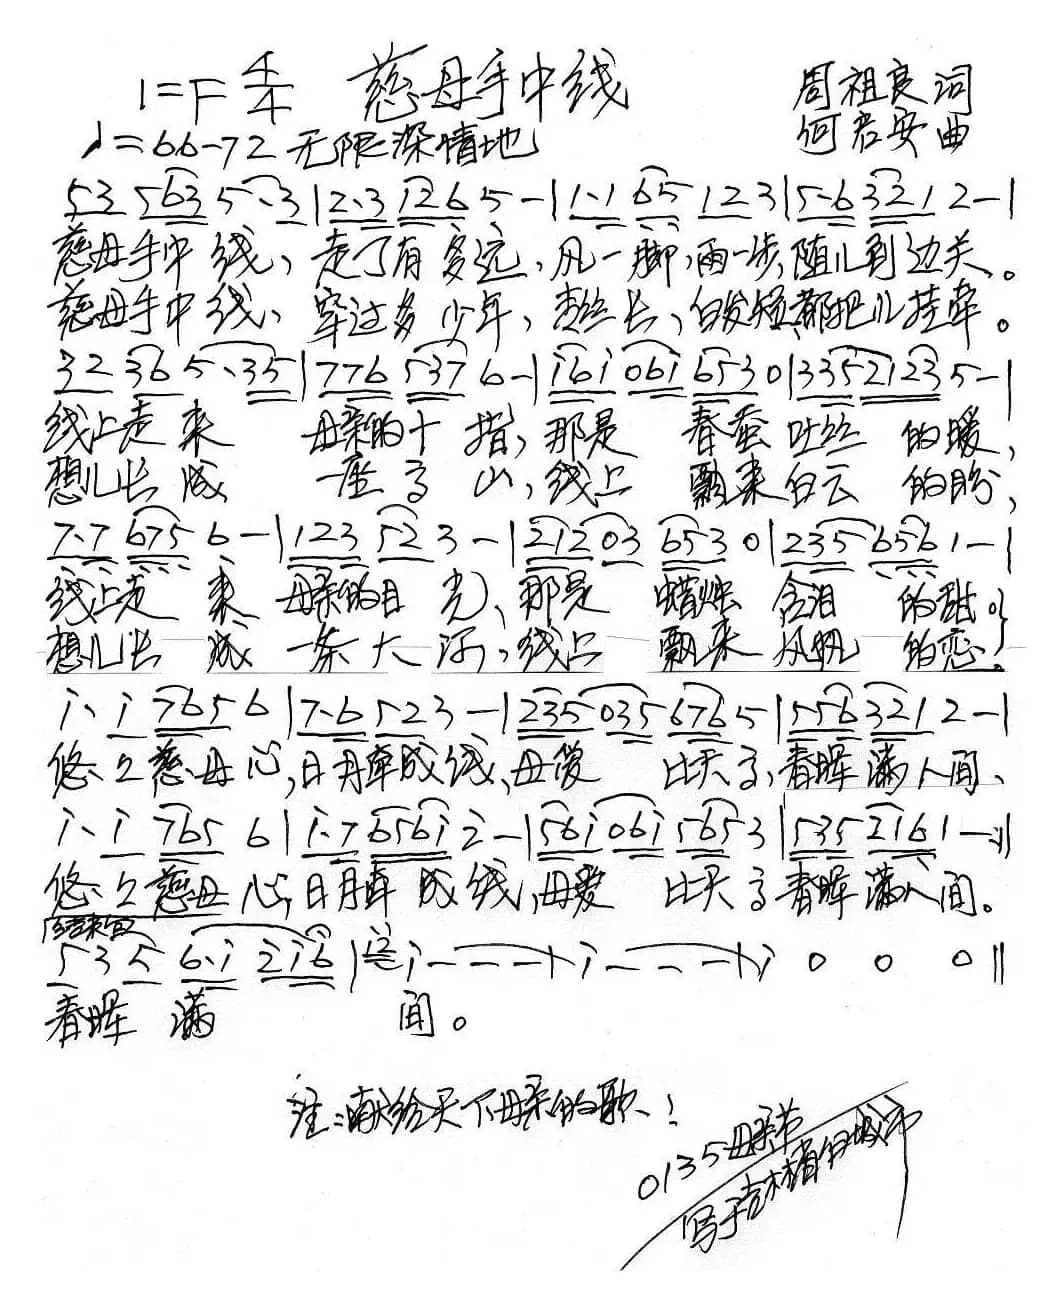 1=F 4/4 慈母手中线 周祖良 词
♩=66-72 无限深情地 何君安 曲
53 563 5·3 | 2·3 126 5- | 1·1 65 12 3 | 5·6 321 2- |
慈母手中线，走了有多远，风一脚，雨一步，随儿到边关。
慈母手中线，穿过多少年，青丝长，白发短，都把儿挂牵。
32 36 5·35 | 776 537 6- | i6i 06i 653 0 | 335 2123 5- |
线上走来 母亲的十指，那是 春蚕吐丝 的暖，
想儿长成 一座高山，线上 飘来白云 的盼，
7·7 675 6- | 123 52 3- | 212 03 653 0 | 235 656 1- |
线上走来 母亲的目光，那是 蜡烛含泪 的甜。
想儿长成 一条大河，线上 飘来风帆 的恋。
i·i 765 6 | 7·6 52 3- | 235 035 676 5 | 556 321 2- |
悠久慈母心，日月牵成线，母爱 比天高，春晖满人间、
i·i 765 6 | i·7 656i 2- | 56i 06i 565 3 | 535 216 1- :||
悠久慈母心，日月牵成线，母爱 比天高 春晖满人间。
结束句
5 3 5 6·i 2i6 | i2 i - - - | i - - - | i 0 0 0 ||
春晖 满 间。
注：献给天下母亲的歌！
0135母亲节
写于吉林梅的城市